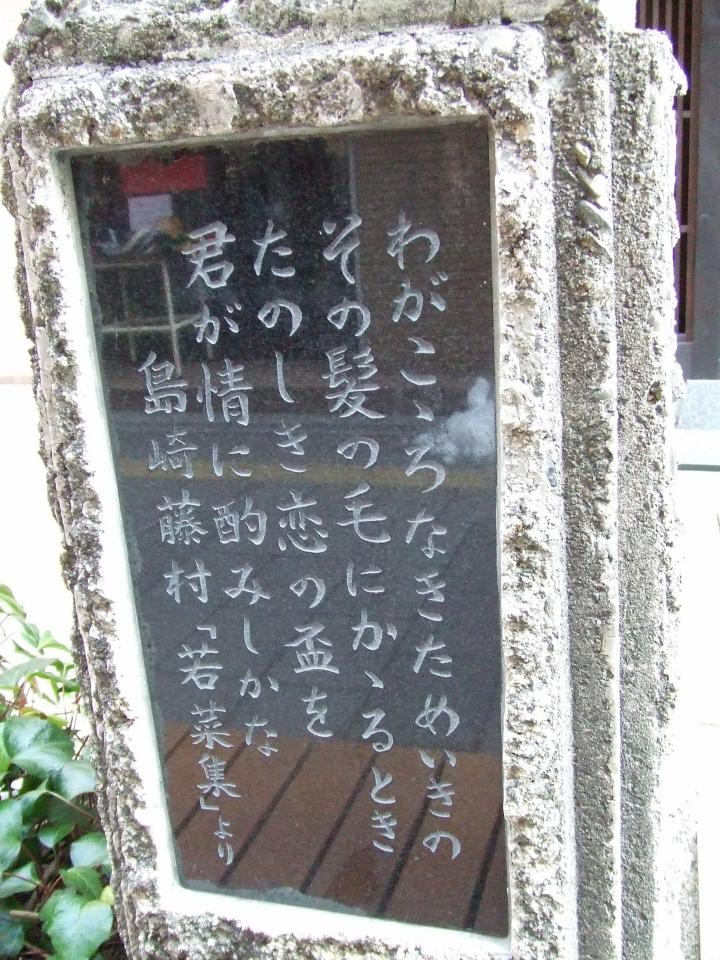 わがこゝろなきためいきの
その髪の毛にかゝるとき
たのしき恋の盃を
君が情に酌みしかな
島崎藤村「若菜集」より